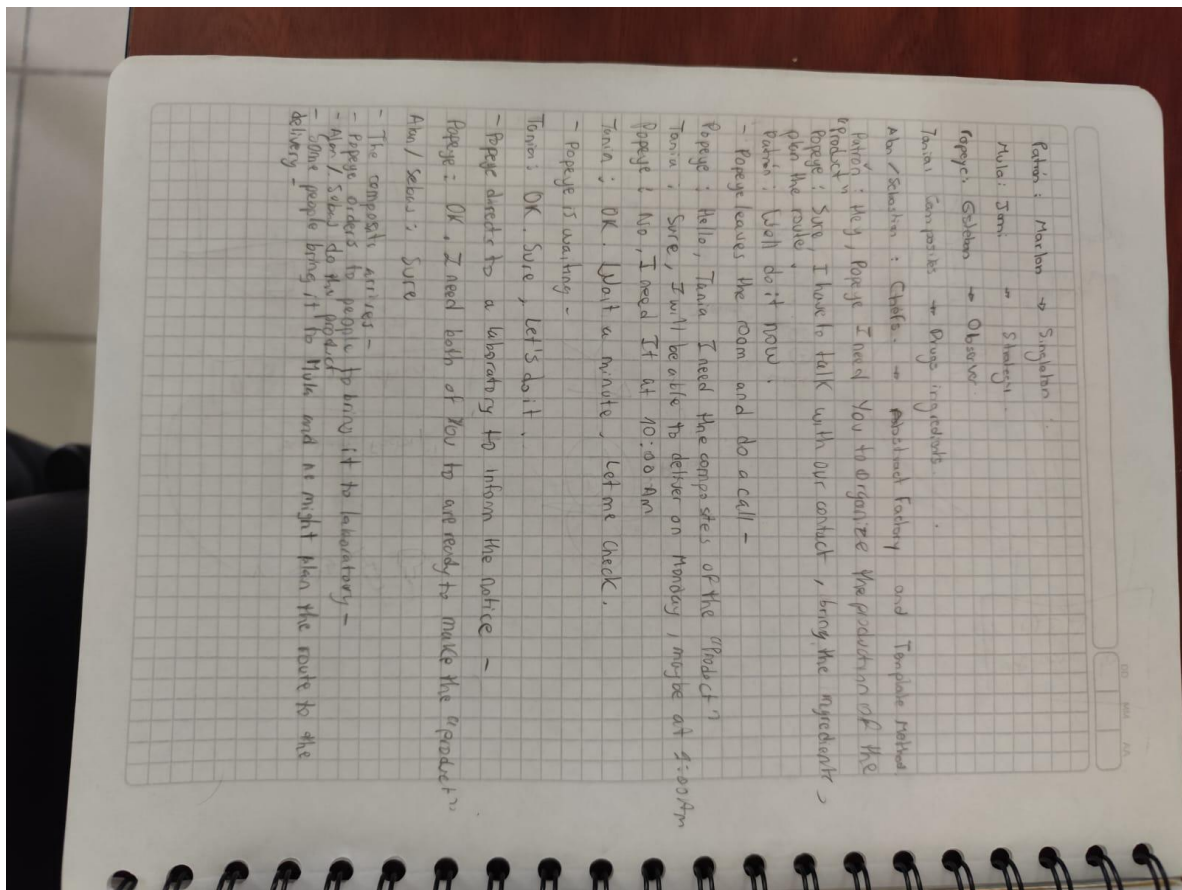 Patrón : Marlon → Singleton
Mula : Jomi → Strategy.
Popeye : Esteban → Observer.
Tania : Composites → Drugs ingredients.
Alan / Sebastian : Chefs. → Abstract Factory and Template Method
Patrón : Hey, Popeye I need You to organize the production of the
"Product"
Popeye : Sure, I have to talk with our contact, bring the ingredients,
plan the route,
Patrón : Well do it now.
- Popeye leaves the room and do a call -
Popeye : Hello, Tania I need the composites of the "Product"
Tania : Sure, I will be able to deliver on Monday, maybe at 1:00 Am
Popeye : No, I need It at 10:00 Am
Tania : OK. Wait a minute, Let me check.
- Popeye is waiting -
Tania : OK. Sure, Let's do it.
- Popeye directs to a laboratory to inform the notice -
Popeye : OK, I need both of You to are ready to make the "product"
Alan / Sebas : Sure
- The composite arrives -
- Popeye orders to people to bring it to laboratory -
- Alan / Sebas do the product
- Some people bring it to Mula and he might plan the route to the
delivery -